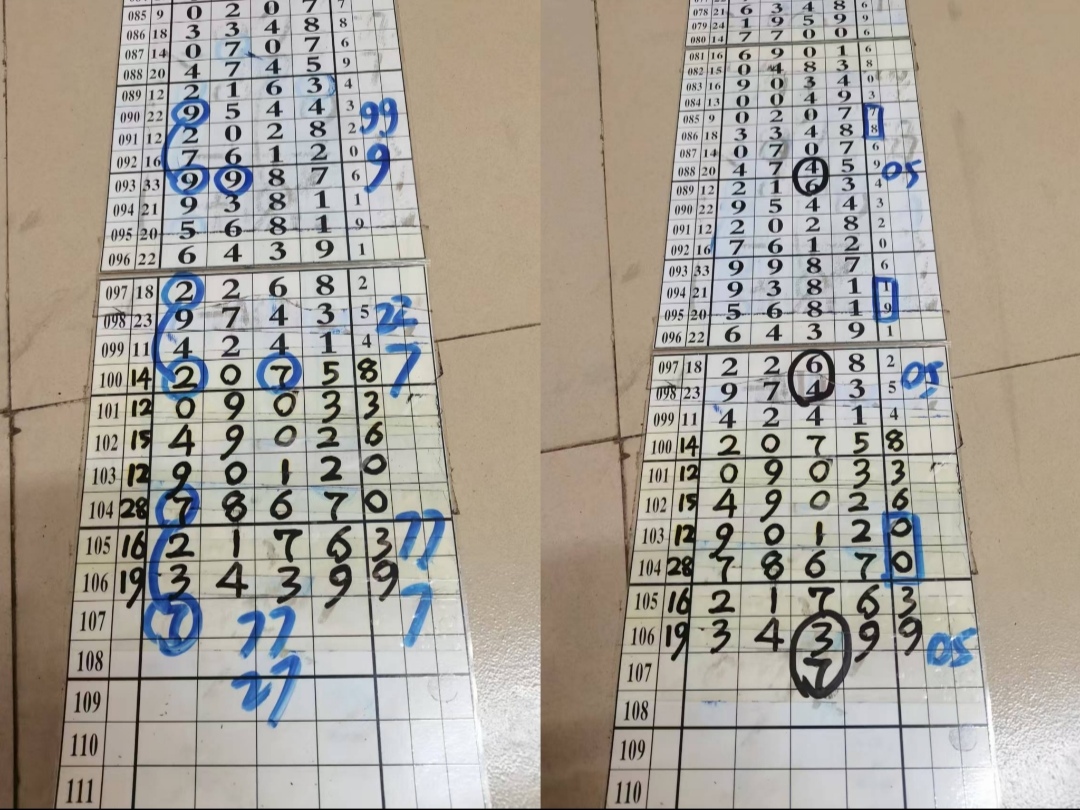 085 9 0 2 0 7 7
086 18 3 3 4 8 8
087 14 0 7 0 7 6
088 20 4 7 4 5 9
089 12 2 1 6 3 4
090 22 9 5 4 4 3 99
091 12 2 0 2 8 2
092 16 7 6 1 2 0 9
093 33 9 9 8 7 6
094 21 9 3 8 1 1
095 20 5 6 8 1 9
096 22 6 4 3 9 1
097 18 2 2 6 8 2
098 23 9 7 4 3 5 22
099 11 4 2 4 1 4
100 14 2 0 7 5 8 7
101 12 0 9 0 3 3
102 15 4 9 0 2 6
103 12 9 0 1 2 0
104 28 7 8 6 7 0
105 16 2 1 7 6 3 77
106 19 3 4 3 9 9
107 7 77 7
108
27
109
110
111
078 21 6 3 4 8 6
079 24 1 9 5 9 9
080 14 7 7 0 0 6
081 16 6 9 0 1 6
082 15 0 4 8 3 8
083 16 9 0 3 4 0
084 13 0 0 4 9 3
085 9 0 2 0 7 7
086 18 3 3 4 8 8
087 14 0 7 0 7 6
088 20 4 7 4 5 9 05
089 12 2 1 6 3 4
090 22 9 5 4 4 3
091 12 2 0 2 8 2
092 16 7 6 1 2 0
093 33 9 9 8 7 6
094 21 9 3 8 1 1
095 20 5 6 8 1 9
096 22 6 4 3 9 1
097 18 2 2 6 8 2 05
098 23 9 7 4 3 5
099 11 4 2 4 1 4
100 14 2 0 7 5 8
101 12 0 9 0 3 3
102 15 4 9 0 2 6
103 12 9 0 1 2 0
104 28 7 8 6 7 0
105 16 2 1 7 6 3
106 19 3 4 3 9 9 05
107 7
108
109
110